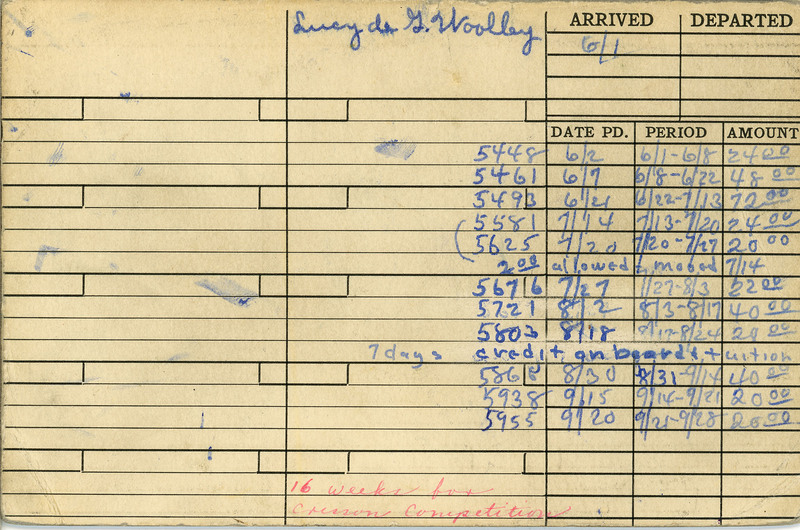 Lucy de G. Woolley
ARRIVED DEPARTED
6/1
DATE PD. PERIOD AMOUNT
5448 6/2 6/1-6/8 24 00
5461 6/7 6/8-6/22 48 00
5493 6/21 6/22-7/13 72 00
5581 7/14 7/13-7/20 24 00
5625 7/20 7/20-7/27 20 00
2 00 allowed moved 7/14
5676 7/27 7/27-8/3 22 00
5721 8/2 8/3-8/17 40 00
5803 8/18 8/17-8/24 20 00
7 days credit on board & tuition
5868 8/30 8/31-9/14 40 00
5938 9/15 9/14-9/21 20 00
5955 9/20 9/21-9/28 20 00
16 weeks for
Cresson Competition